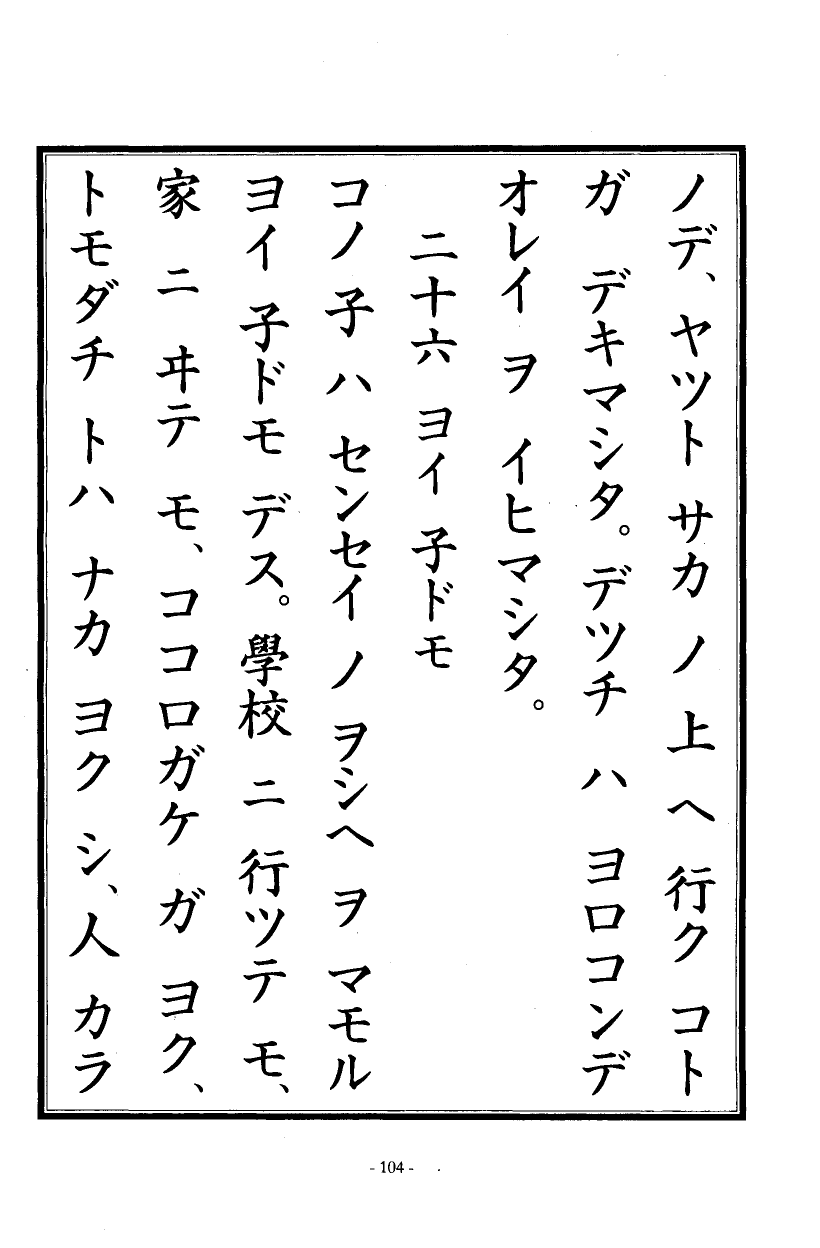 ノデ、ヤツト サカ ノ 上 ヘ 行ク コト
ガ デキマシタ。デツチ ハ ヨロコンデ
オレイ ヲ イヒマシタ。
二十六 ヨイ 子ドモ
コノ 子 ハ センセイ ノ ヲシヘ ヲ マモル
ヨイ 子ドモ デス。學校 ニ 行ツテ モ、
家 ニ ヰテ モ、ココロガケ ガ ヨク、
トモダチ トハ ナカ ヨク シ、人 カラ
- 104 -